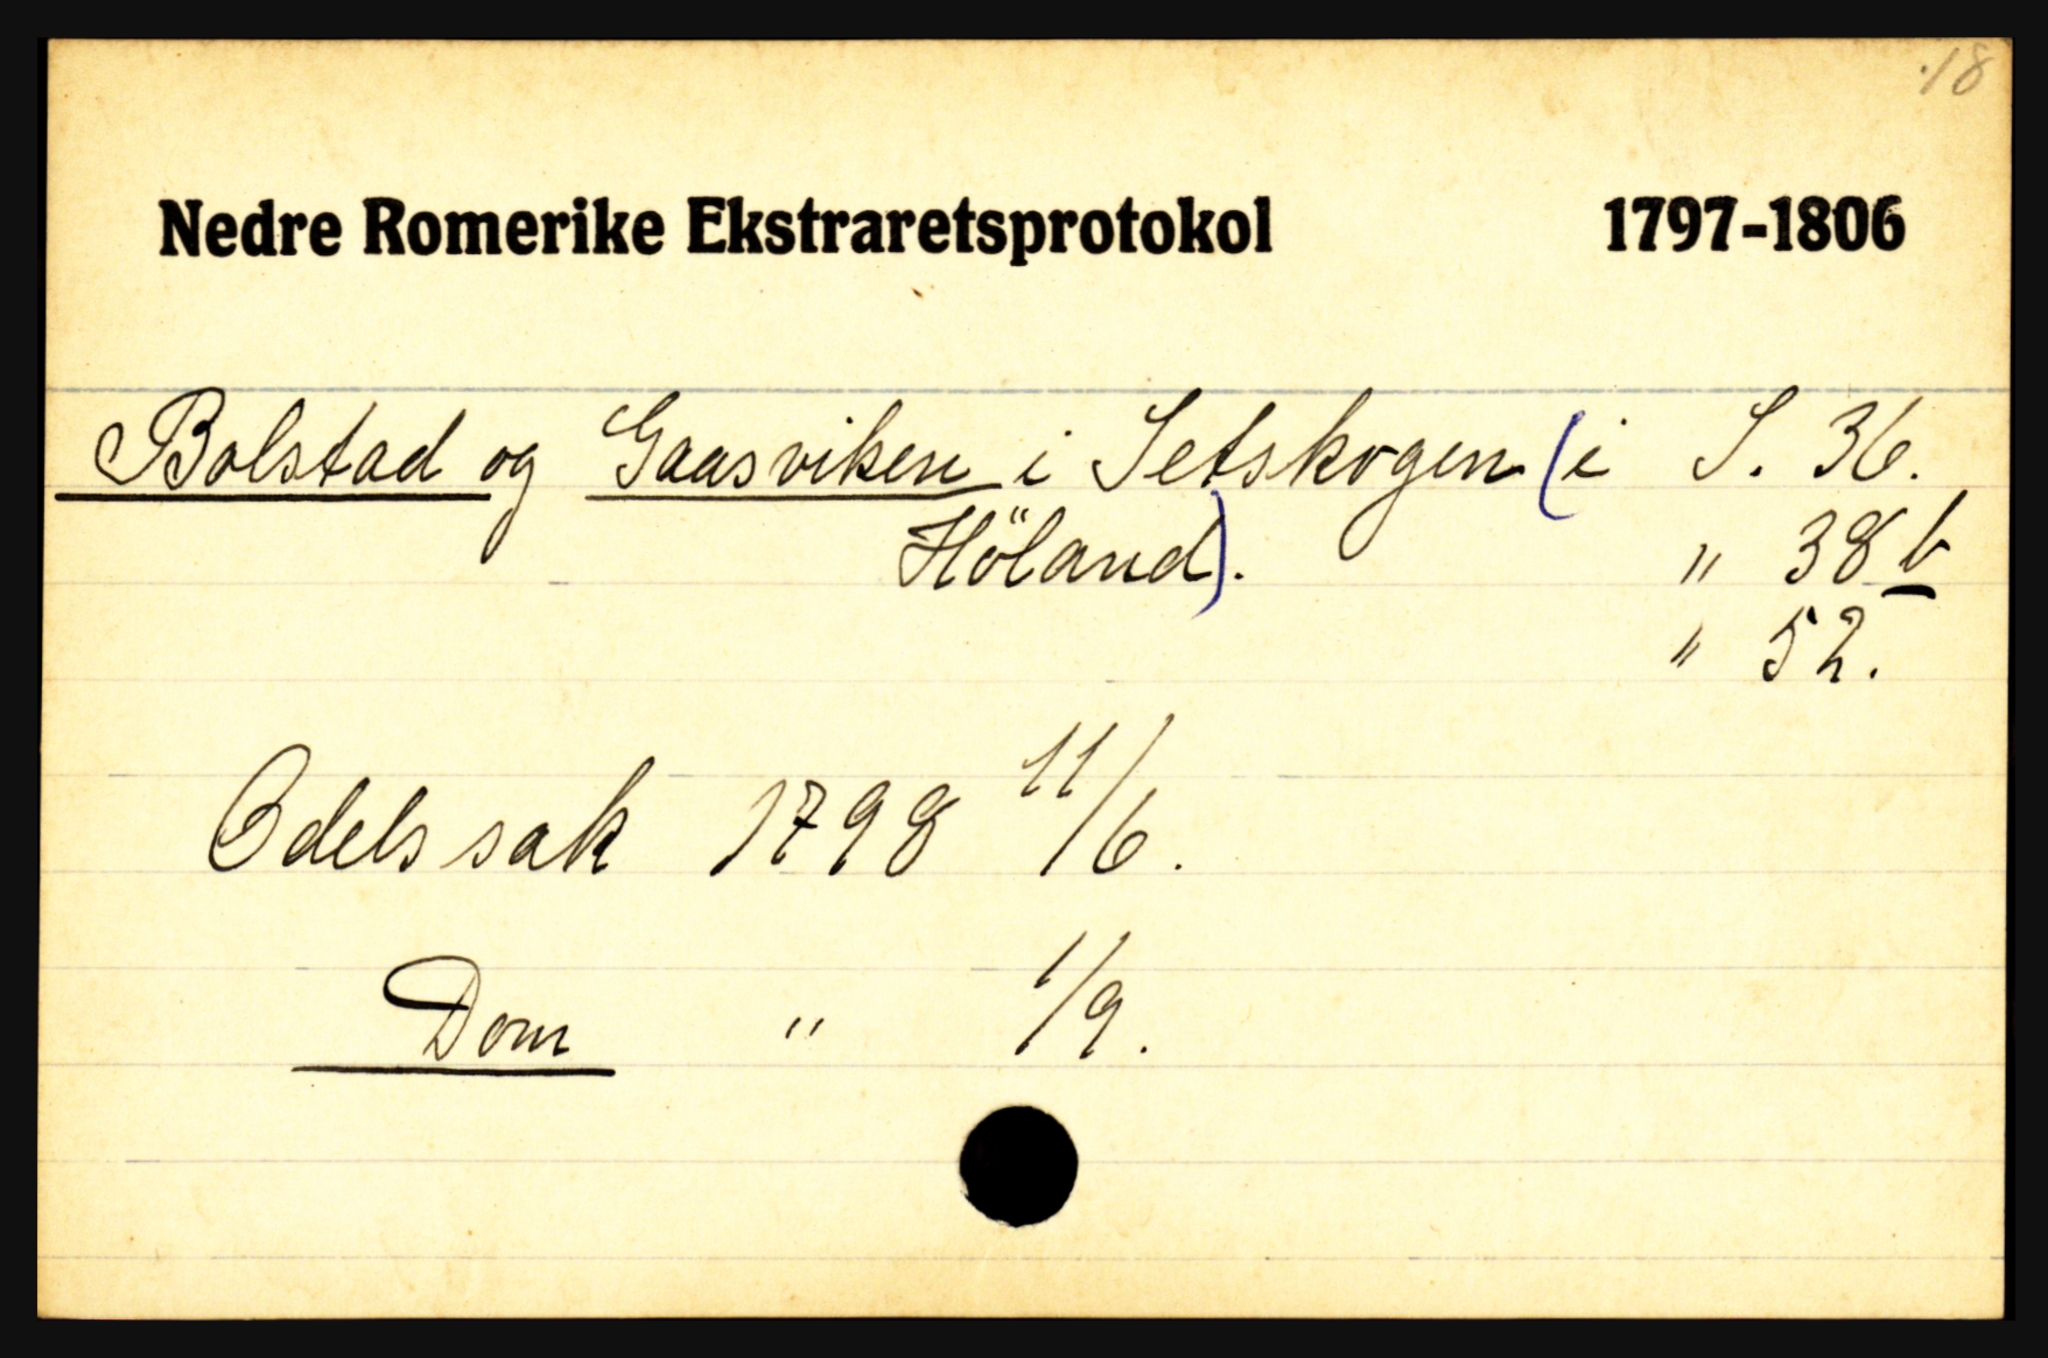 18
Nedre Romerike Ekstraretsprotokol 1797-1806
Bolstad og Gaasviken i Setskogen (i S. 36.
Höland). " 38 b
" 52.
Odelssak 1798 11/6.
Dom " 1/9.